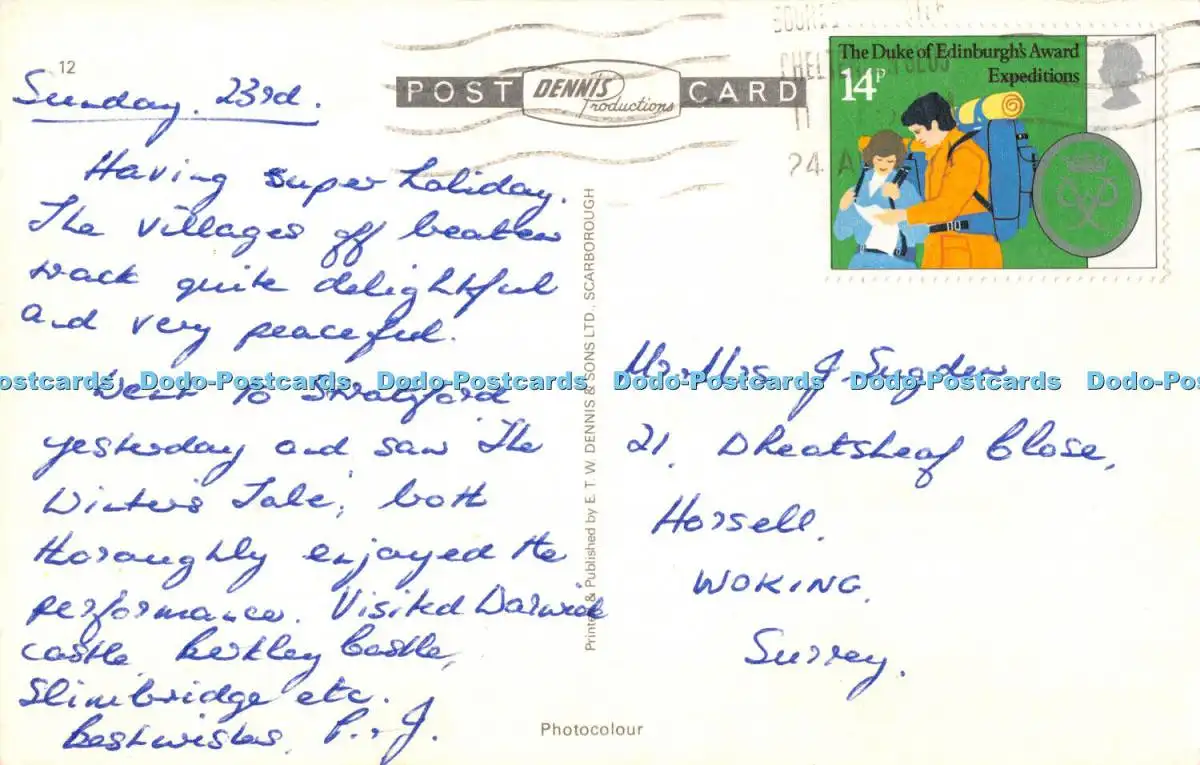 12
POST DENNIS Productions CARD
24 A
The Duke of Edinburgh's Award
Expeditions
14P
Sunday. 23rd.
Having super holiday.
The villages off beaten
track quite delightful
and very peaceful.
Went to Stratford
yesterday and saw 'The
Winters Tale', both
thoroughly enjoyed the
performance. Visited Warwick
castle, Berkley Castle,
Slimbridge etc.
Best wishes, P. & J.
Printed & Published by E. T. W. DENNIS & SONS LTD., SCARBOROUGH
Mr. Mrs J. Sugden
21, Wheatsheaf Close,
Horsell.
WOKING.
Surrey.
Photocolour
ostcards Dodo-Postcards Dodo-Postcards Dodo-Postcards Dodo-Postcards Dodo-Post